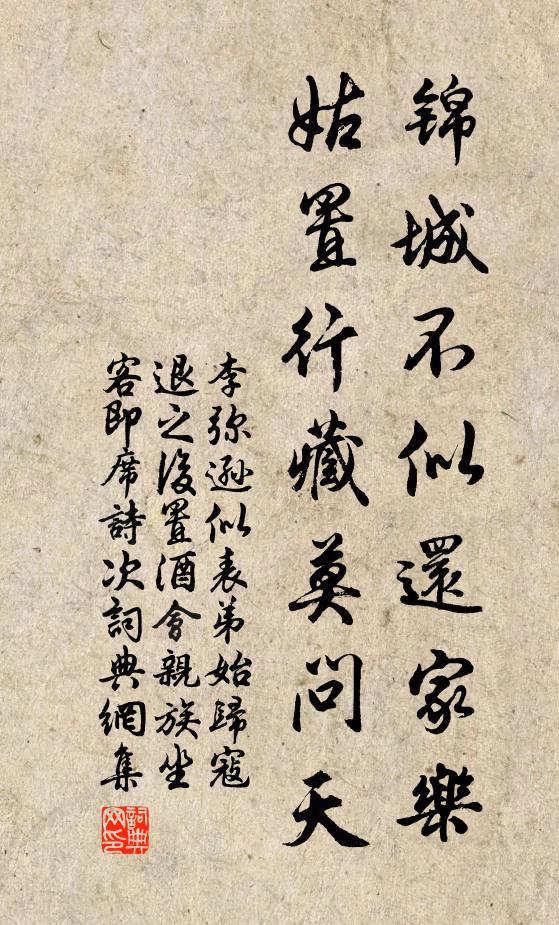 錦城不似還家樂
姑置行藏莫問天
李弥遜似表弟始歸寇
退之後置酒會親族坐
客即席詩次詞典網集
詞典
网印